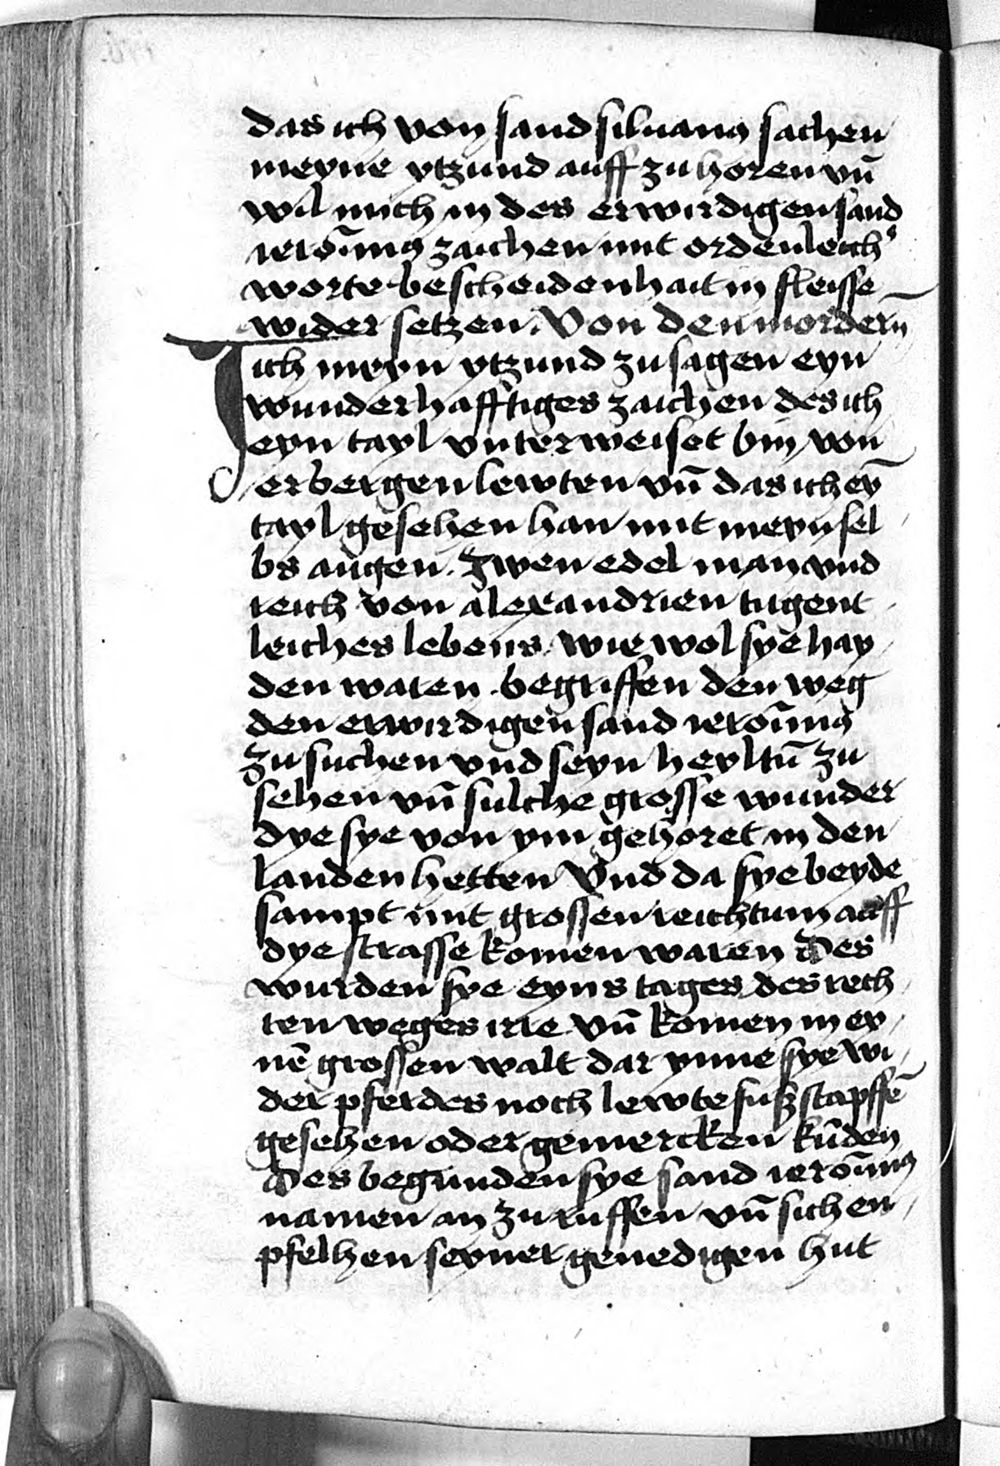 das ich von sand siluanus sachen
meyne ytzund auff zu horen vn̄
wil mich in des erwirdigen sand
ieronimus zaichen mit ordenleich'
worte bescheidenhait in fleisse
wider setzen. Von den mordern̄
Ich meyn ytzund zu sagen eyn
wunderhafftiges zaichen des ich
eyn tayl vnterweiset bin von
erbergen lewten vn̄ das ich eȳ
tayl gesehen han mit meyn sel
bs augen. Zwen edel man vnd
reich von alexandrien tugent
leiches lebens. wie wol sye hay
den waren. begriffen den weg
den erwirdigen sand ieronimus
zu suchen vnd seyn heyltū zu
sehen vn̄ sulche grosse wunder
dye sye von ym gehoret in den
landen hetten Vnd da sye beyde
sampt mit grossen reichtum auff
dye strasse komen waren Des
wurden sye eyns tages des rech
ten weges irre vn̄ komen in ey
nē grossen walt dar ynne sye wi
der pferdes noch lewte fußstapffē
gesehen oder gemercken kūden
Des begunden sye sand ieronimus
namen an zu ruffen vn̄ sich en
pfelhen seyner genedigen hut